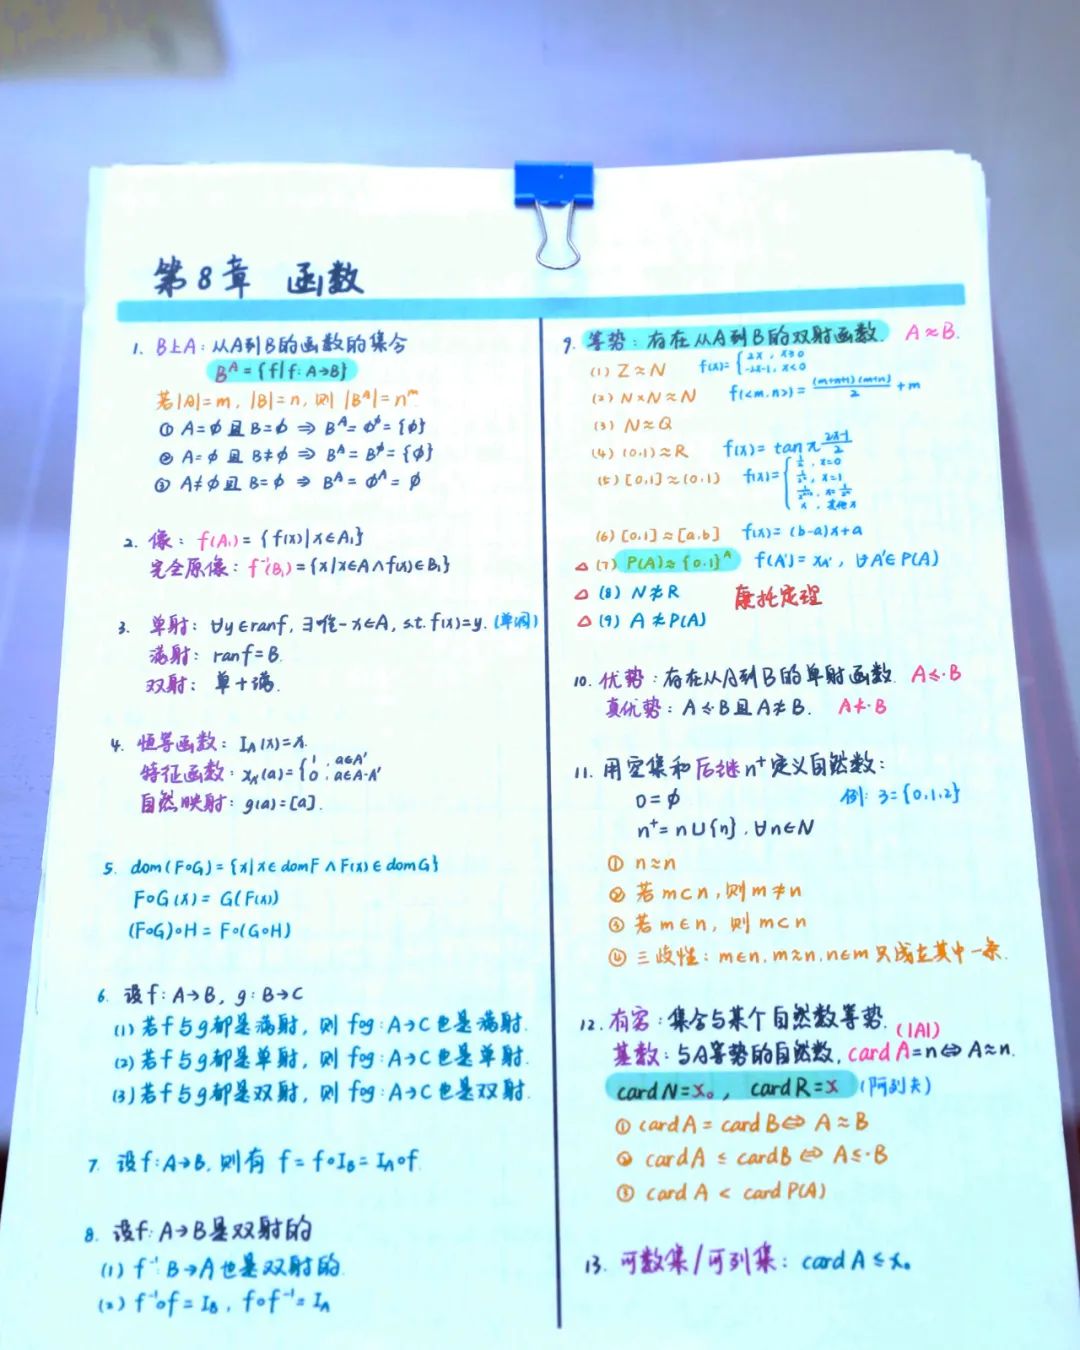 第8章 函数
1. B上A：从A到B的函数的集合
B^A = {f|f: A→B}
若|A|=m, |B|=n, 则 |B^A|=n^m
① A=∅ 且 B=∅ ⇒ B^A=∅^∅={∅}
② A=∅ 且 B≠∅ ⇒ B^A=B^∅={∅}
③ A≠∅ 且 B=∅ ⇒ B^A=∅^A=∅
2. 像：f(A₁)={f(x)|x∈A₁}
完全原像：f⁻¹(B₁)={x|x∈A∧f(x)∈B₁}
3. 单射：∀y∈ranf, ∃唯一x∈A, s.t. f(x)=y. (单调)
满射：ranf=B.
双射：单+满.
4. 恒等函数：I_A(x)=x.
特征函数：χ_A'(a)={1, a∈A'
0, a∈A-A'
自然映射：g(a)=[a].
5. dom(F∘G)={x|x∈domF∧F(x)∈domG}
F∘G(x)=G(F(x))
(F∘G)∘H=F∘(G∘H)
6. 设f:A→B, g:B→C
(1) 若f与g都是满射，则 fog:A→C也是满射.
(2) 若f与g都是单射，则 fog:A→C也是单射.
(3) 若f与g都是双射，则 fog:A→C也是双射.
7. 设f:A→B, 则有 f=f∘I_B=I_A∘f.
8. 设f:A→B是双射的
(1) f⁻¹:B→A也是双射的.
(2) f⁻¹∘f=I_B, f∘f⁻¹=I_A
9. 等势：存在从A到B的双射函数. A≈B.
(1) Z≈N f(x)={2x, x≥0
-2x-1, x<0
(2) N×N≈N f(<m.n>)=(m+n+1)(m+n)/2+m
(3) N≈Q
(4) (0,1)≈R f(x)=tanπ(2x-1)/2
(5) [0,1]≈(0,1) f(x)={1/2, x=0
1/2², x=1
x, 其他x
(6) [0,1]≈[a,b] f(x)=(b-a)x+a
△ (7) P(A)≈{0,1}^A f(A')=χ_A', ∀A'∈P(A)
△ (8) N≉R 康托定理
△ (9) A≉P(A)
10. 优势：存在从A到B的单射函数. A≼·B
真优势：A≼·B且A≉B. A≺·B
11. 用空集和后继n⁺定义自然数：
0=∅ 例: 3={0,1,2}
n⁺=n∪{n}, ∀n∈N
① n≈n
② 若m⊂n, 则m≉n
③ 若m∈n, 则m⊂n
④ 三歧性：m∈n, m≈n, n∈m只成立其中一条.
12. 有穷：集合与某个自然数等势.
基数：与A等势的自然数, (|A|) card A=n⇔A≈n.
card N=ℵ₀, card R=ℵ (阿列夫)
① card A=card B⇔A≈B
② card A≤card B⇔A≼·B
③ card A<card P(A)
13. 可数集/可列集：card A≤ℵ₀